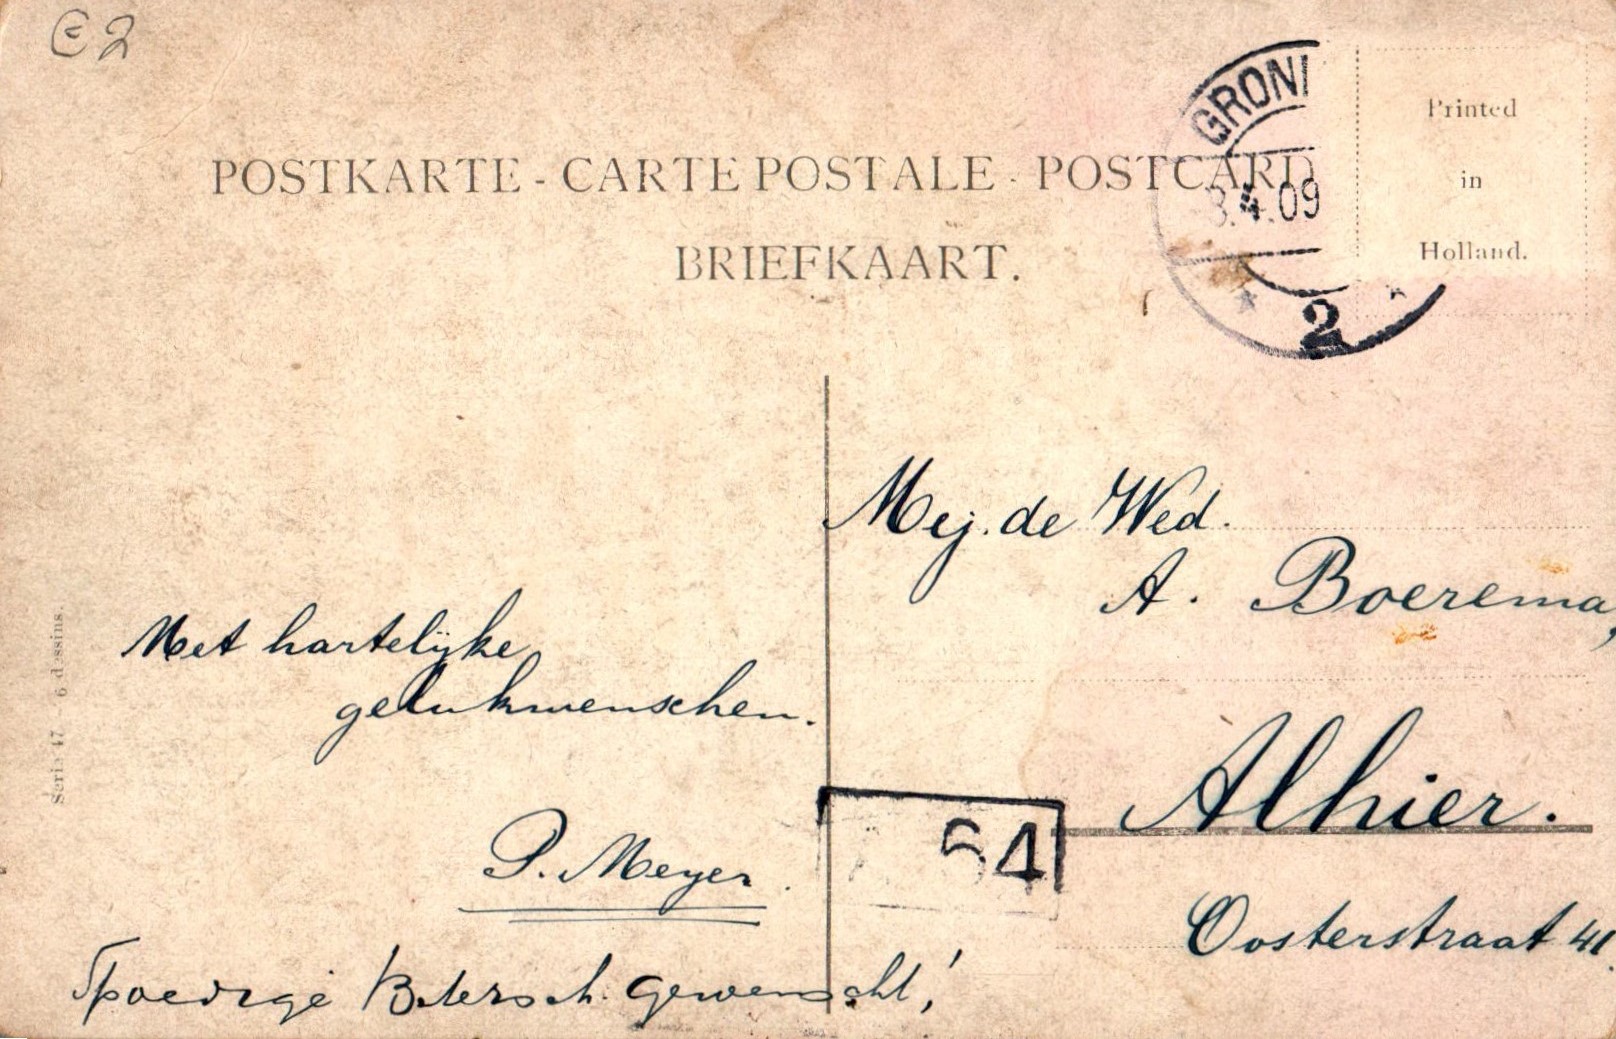 €2
POSTKARTE - CARTE POSTALE - POSTCARD
BRIEFKAART.
GRONI
3.4.09
2
Printed
in
Holland.
Mej. de Wed.
A. Boerema,
Alhier.
Oosterstraat 41.
64
Met hartelijke
gelukwenschen.
P. Meyer.
Spoedige Betersch. gewenscht!
Serie 47 6 dessins.